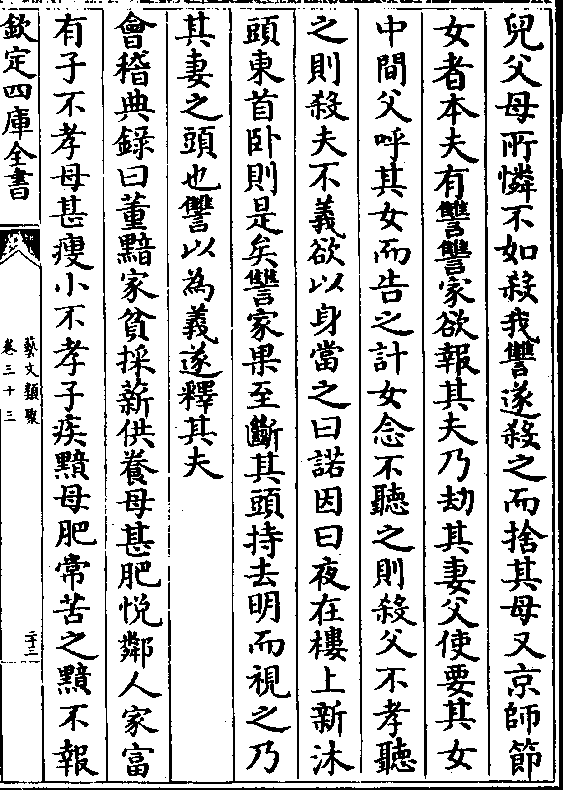 兒父母所憐不如殺我讐遂殺之而捨其母又京師節
女者本夫有讐讐家欲報其夫乃劫其妻父使要其女
中間父呼其女而告之計女念不聽之則殺父不孝聽
之則殺夫不義欲以身當之曰諾因曰夜在樓上新沐
頭東首卧則是矣讐家果至斷其頭持去明而視之乃
其妻之頭也讐以為義遂釋其夫
會稽典錄曰董黯家貧採薪供養母甚肥悅鄰人家富
有子不孝母甚瘦小不孝子疾黯母肥常苦之黯不報
欽定四庫全書
藝文類聚
卷三十三
二十三